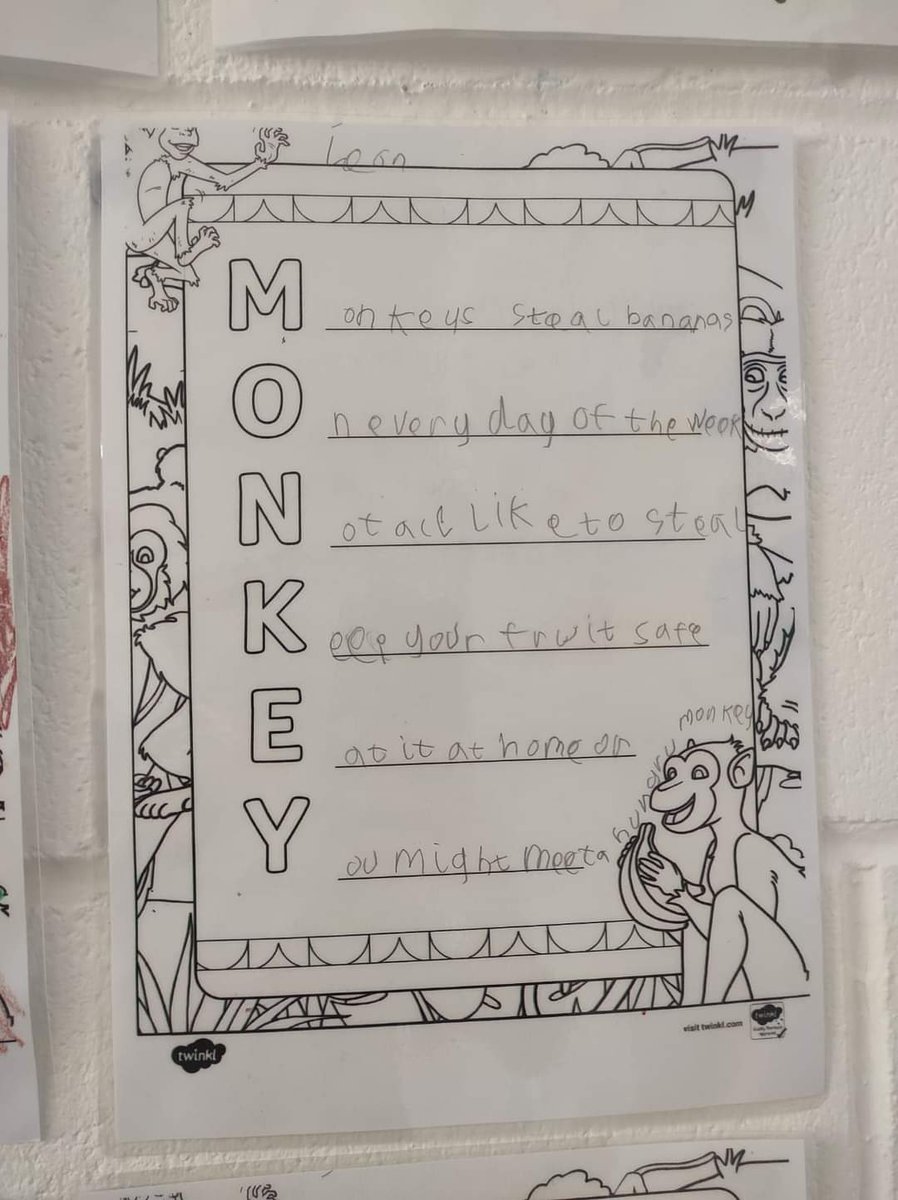 Lean
M onkeys steal bananas
O n every day of the week
N ot all like to steal
K eep your fruit safe
E at it at home or
Y ou might meet a hungry monkey
twinkl
visit twinkl.com
twinkl